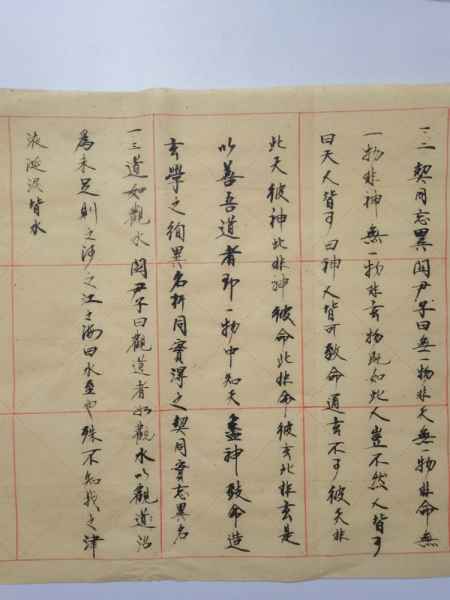 一二 契同忘異 關尹子曰無一物非天無一物非命無
一物非神無一物非玄物既如此人豈不然人皆可
曰天人皆可曰神人皆可致命通玄不可彼天非
此天彼神此非神彼命此非命彼玄此非玄是
以善吾道者即一物中知天盡神致命造
玄學之徇異名析同實得之契同實忘異名
一三道如觀水 關尹子曰觀道者如觀水以觀道沼
為未足則之河之江之海曰水至也殊不知我之津
液涎淚皆水